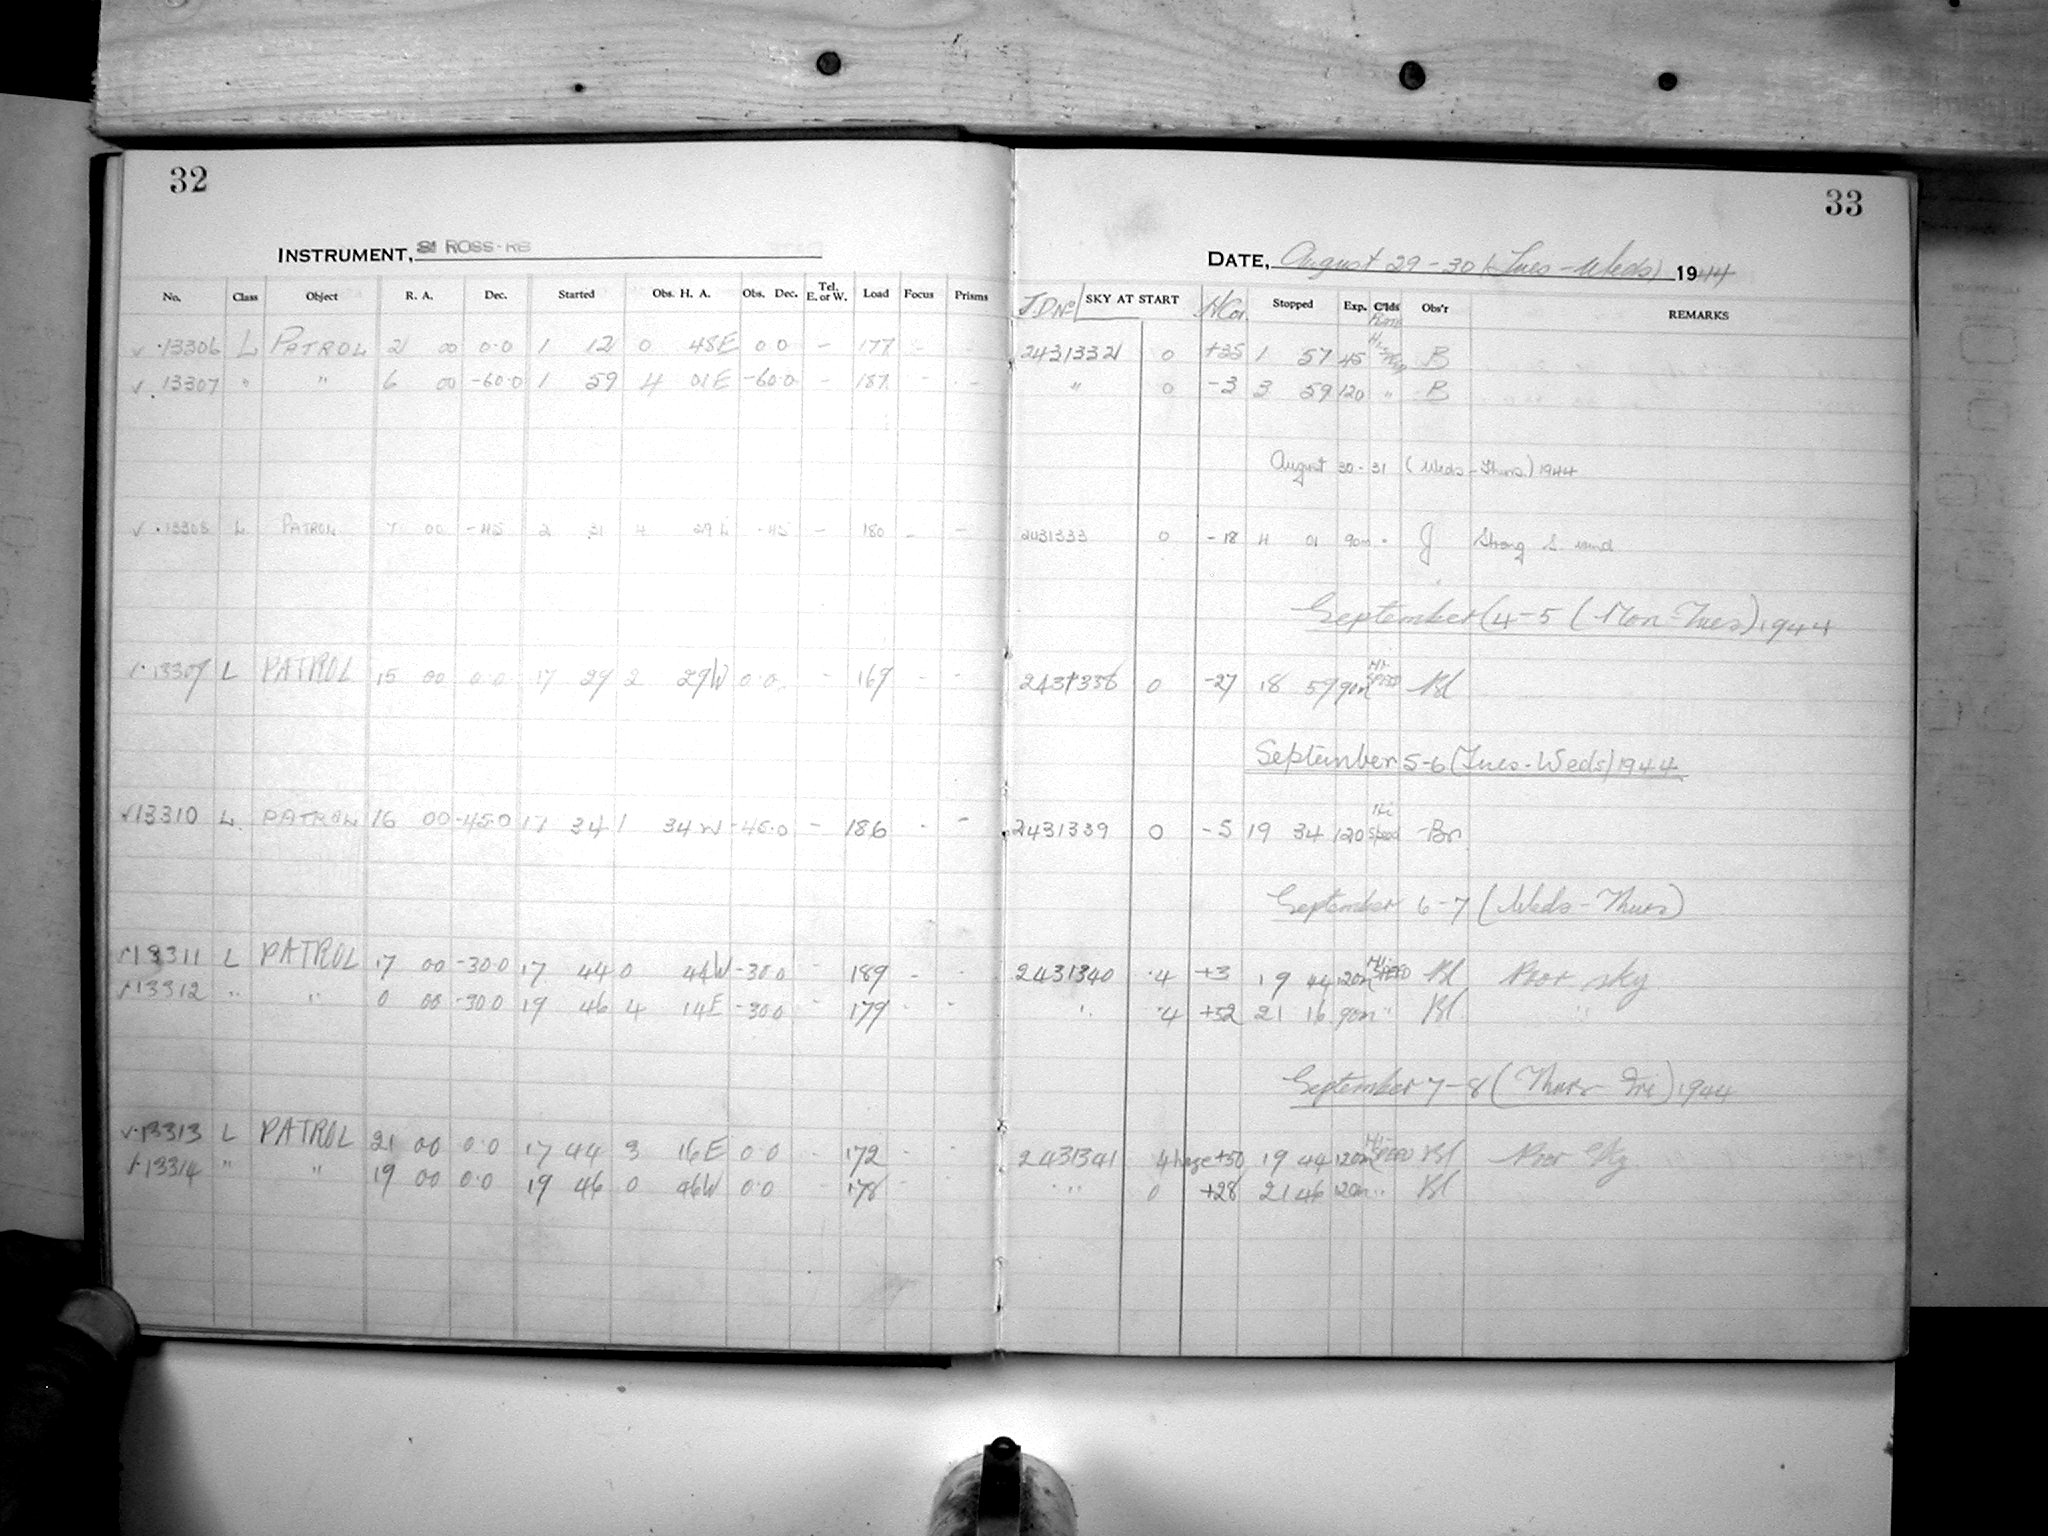 32
INSTRUMENT, ROSS-RB
No. Class Object R. A. Dec. Started Obs. H. A. Obs. Dec. Tel. E. or W. Load Focus Prisms
13306 L PATROL 21 00 0.0 1 12 0 48E 0 0 - 177 - -
13307 " " 6 00 -60.0 1 59 4 01E -60.0 - 187 - -
13308 L PATROL 7 00 -45 2 31 4 29E -45 - 180 - -
13309 L PATROL 15 00 0.0 17 29 2 29W 0.0 - 169 - -
13310 L. PATROL 16 00 -45.0 17 34 1 34W -45.0 - 186 - -
13311 L PATROL 17 00 -30.0 17 44 0 44W -30.0 - 189 - -
13312 " " 0 00 -30.0 19 46 4 14E -30.0 - 179 - -
13313 L PATROL 21 00 0.0 17 44 3 16E 0.0 - 172 - -
13314 " " 19 00 0.0 19 46 0 46W 0.0 - 178 - -
33
DATE, August 29-30 (Tues-Weds) 1944
JD No SKY AT START H Cor. Stopped Exp. C'lds Obs'r REMARKS
2431332 0 +35 1 57 45 B
" 0 -3 3 59 120 " B
August 30-31 (Weds-Thurs.) 1944
2431333 0 -18 4 01 90m J Strong S. wind
September (4-5 (Mon-Tues) 1944
2431338 0 -27 18 59 90m HI-SPEED Bl
September 5-6 (Tues-Weds) 1944
2431339 0 -5 19 34 120 Hi Speed Br.
September 6-7 (Weds-Thurs)
2431340 .4 +3 19 44 120m HI-SPEED Bl Poor sky
" .4 +52 21 16 90m " Bl "
September 7-8 (Thurs-Fri) 1944
2431341 4 haze +50 19 44 120m HI-SPEED Bl Poor sky
" 0 +28 21 46 120m " Bl